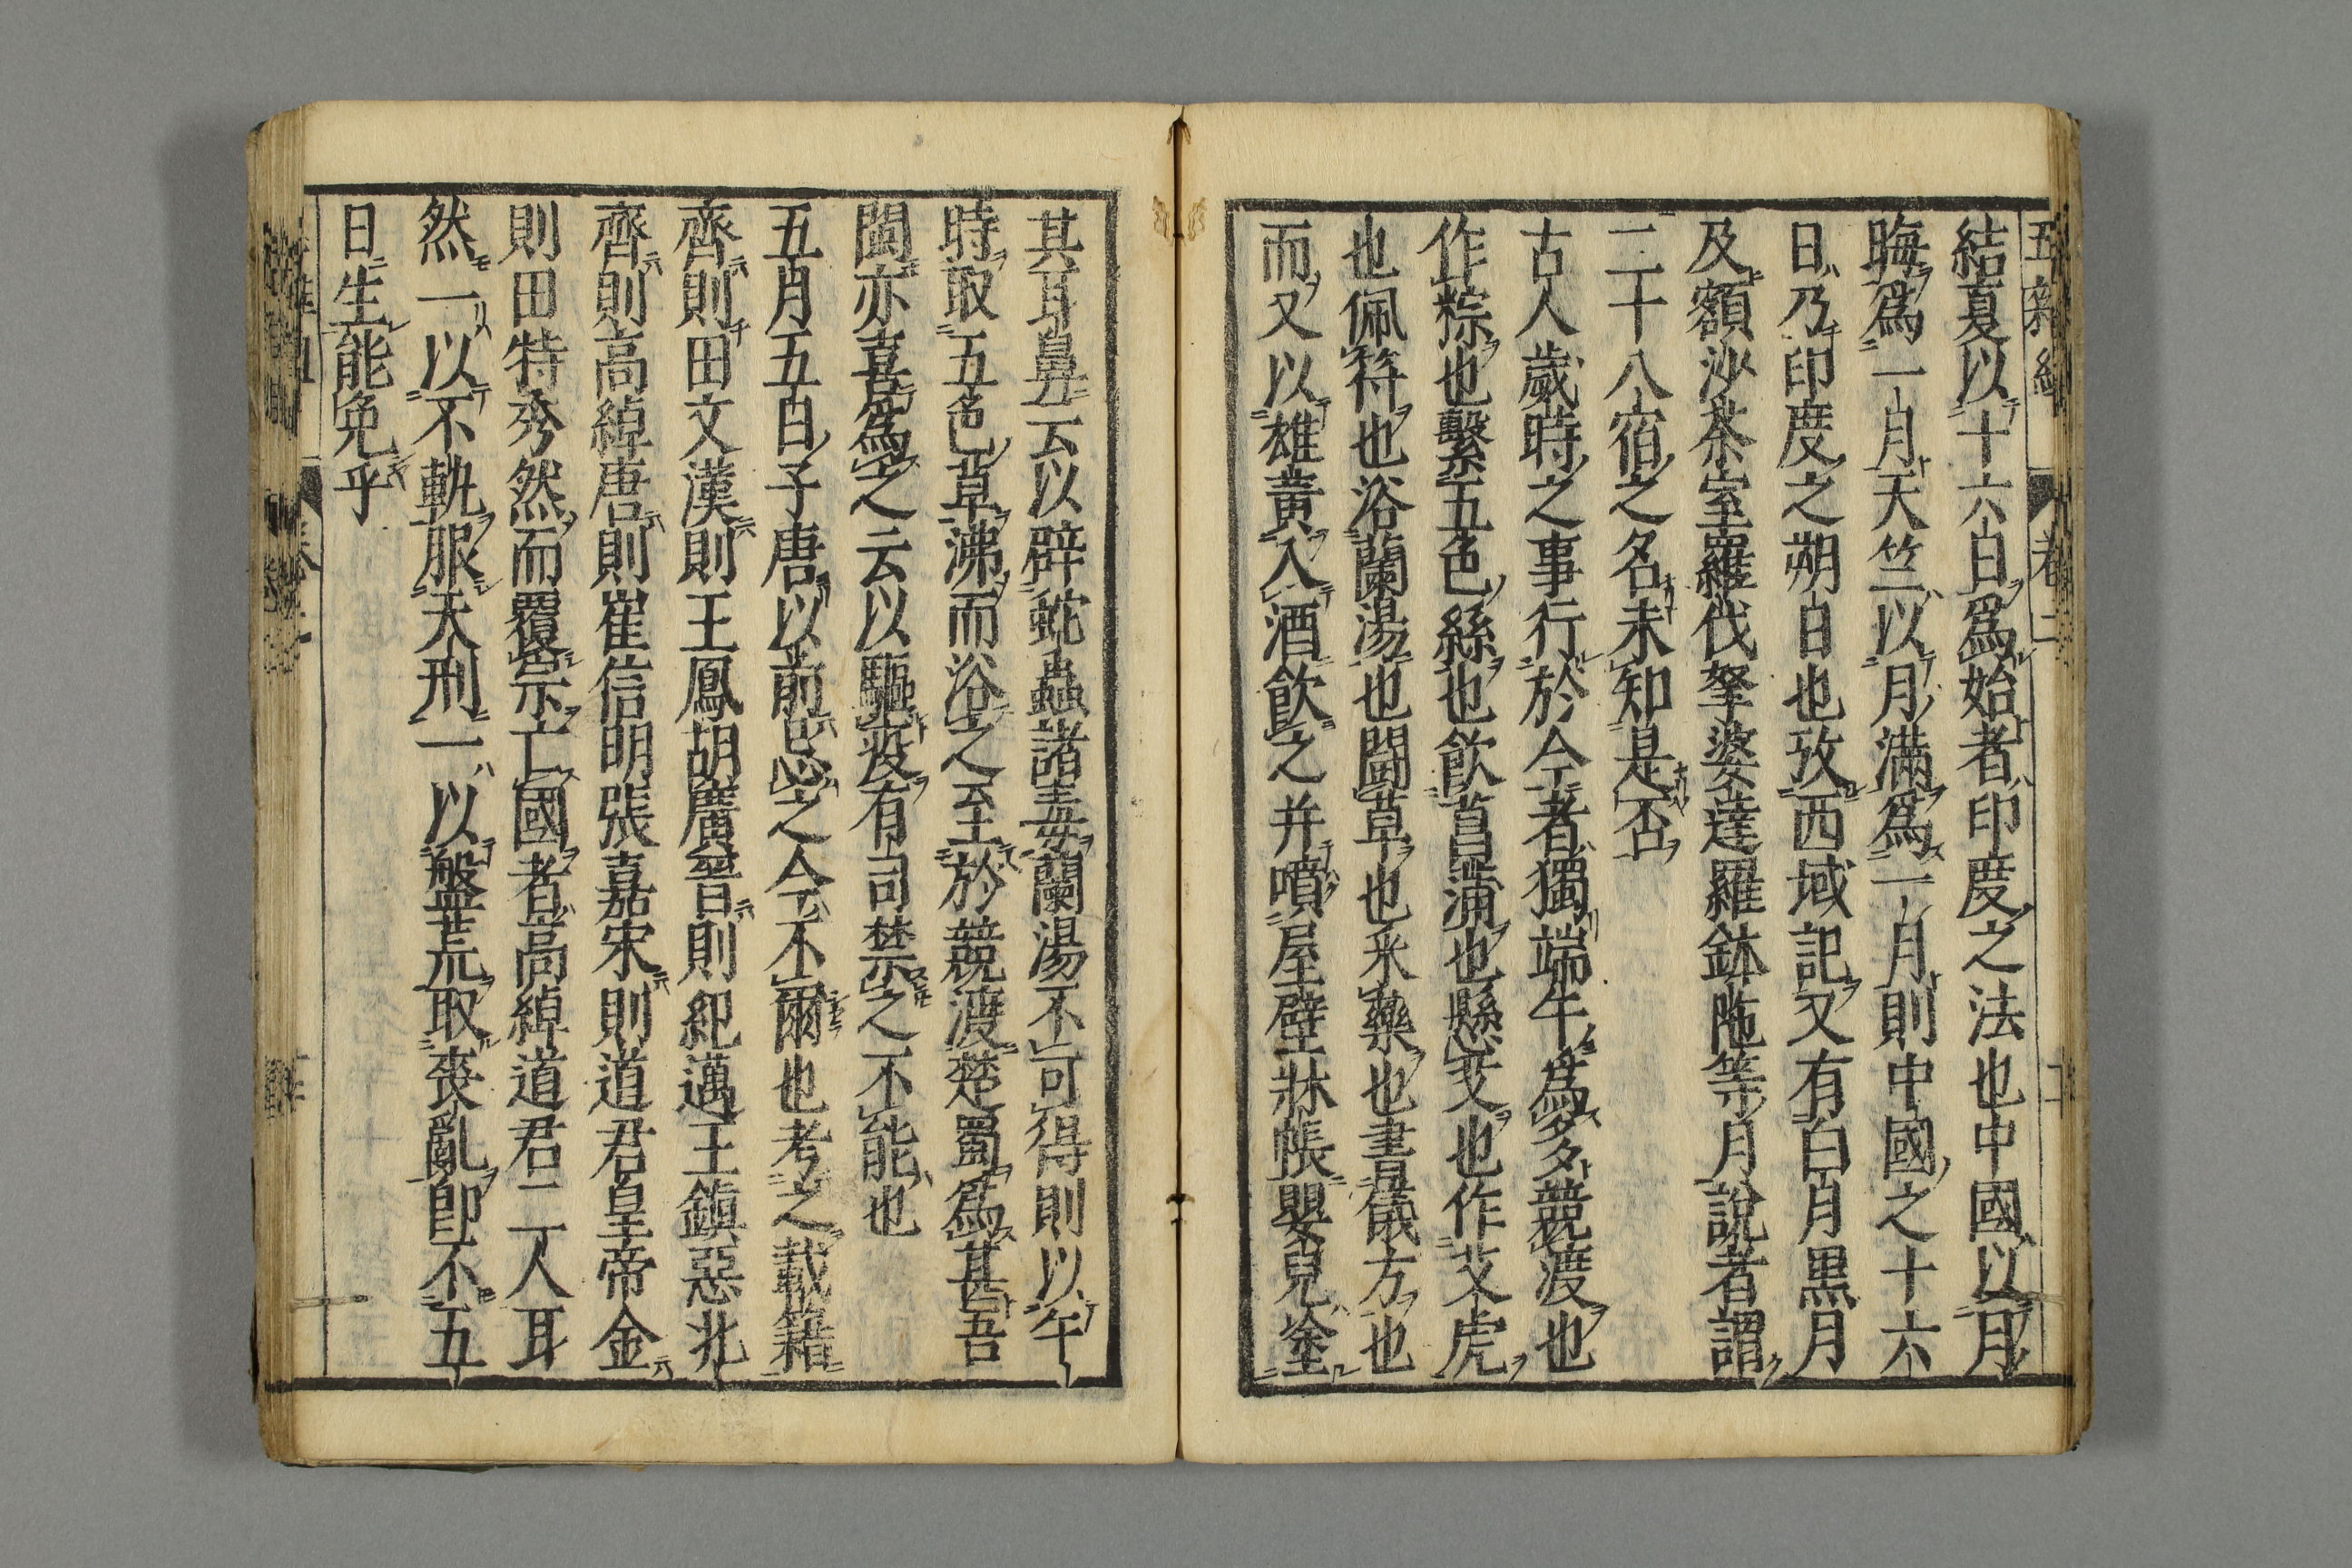 五雜組 卷二
結夏以十六日爲始者印度之法也中國以月
晦爲一月天竺以月滿爲一月則中國之十六
日乃印度之朔日也攷西域記又有白月黒月
及額沙荼室羅伐拏婆達羅鉢陁等月說者謂
二十八宿之名未知是否
古人歲時之事行於今者獨端午爲多競渡也
作粽也繫五色絲也飲菖蒲也懸艾也作艾虎
也佩符也浴蘭湯也鬪草也采藥也書儀方也
而又以雄黃入酒飲之并噴屋壁牀帳嬰兒塗
其耳鼻云以辟蛇蟲諸毒蘭湯不可得則以午
時取五色草沸而浴之至於競渡楚蜀爲甚吾
閩亦喜爲之云以驅疫有司禁之不能也
五月五日子唐以前忌之今不爾也考之載籍
齊則田文漢則王鳳胡廣晉則紀邁王鎮惡北
齊則高綽唐則崔信明張嘉宋則道君皇帝金
則田特秀然而覆宗亡國者高綽道君二人耳
然一以不軌服天刑一以盤荒取喪亂即不五
日生能免乎